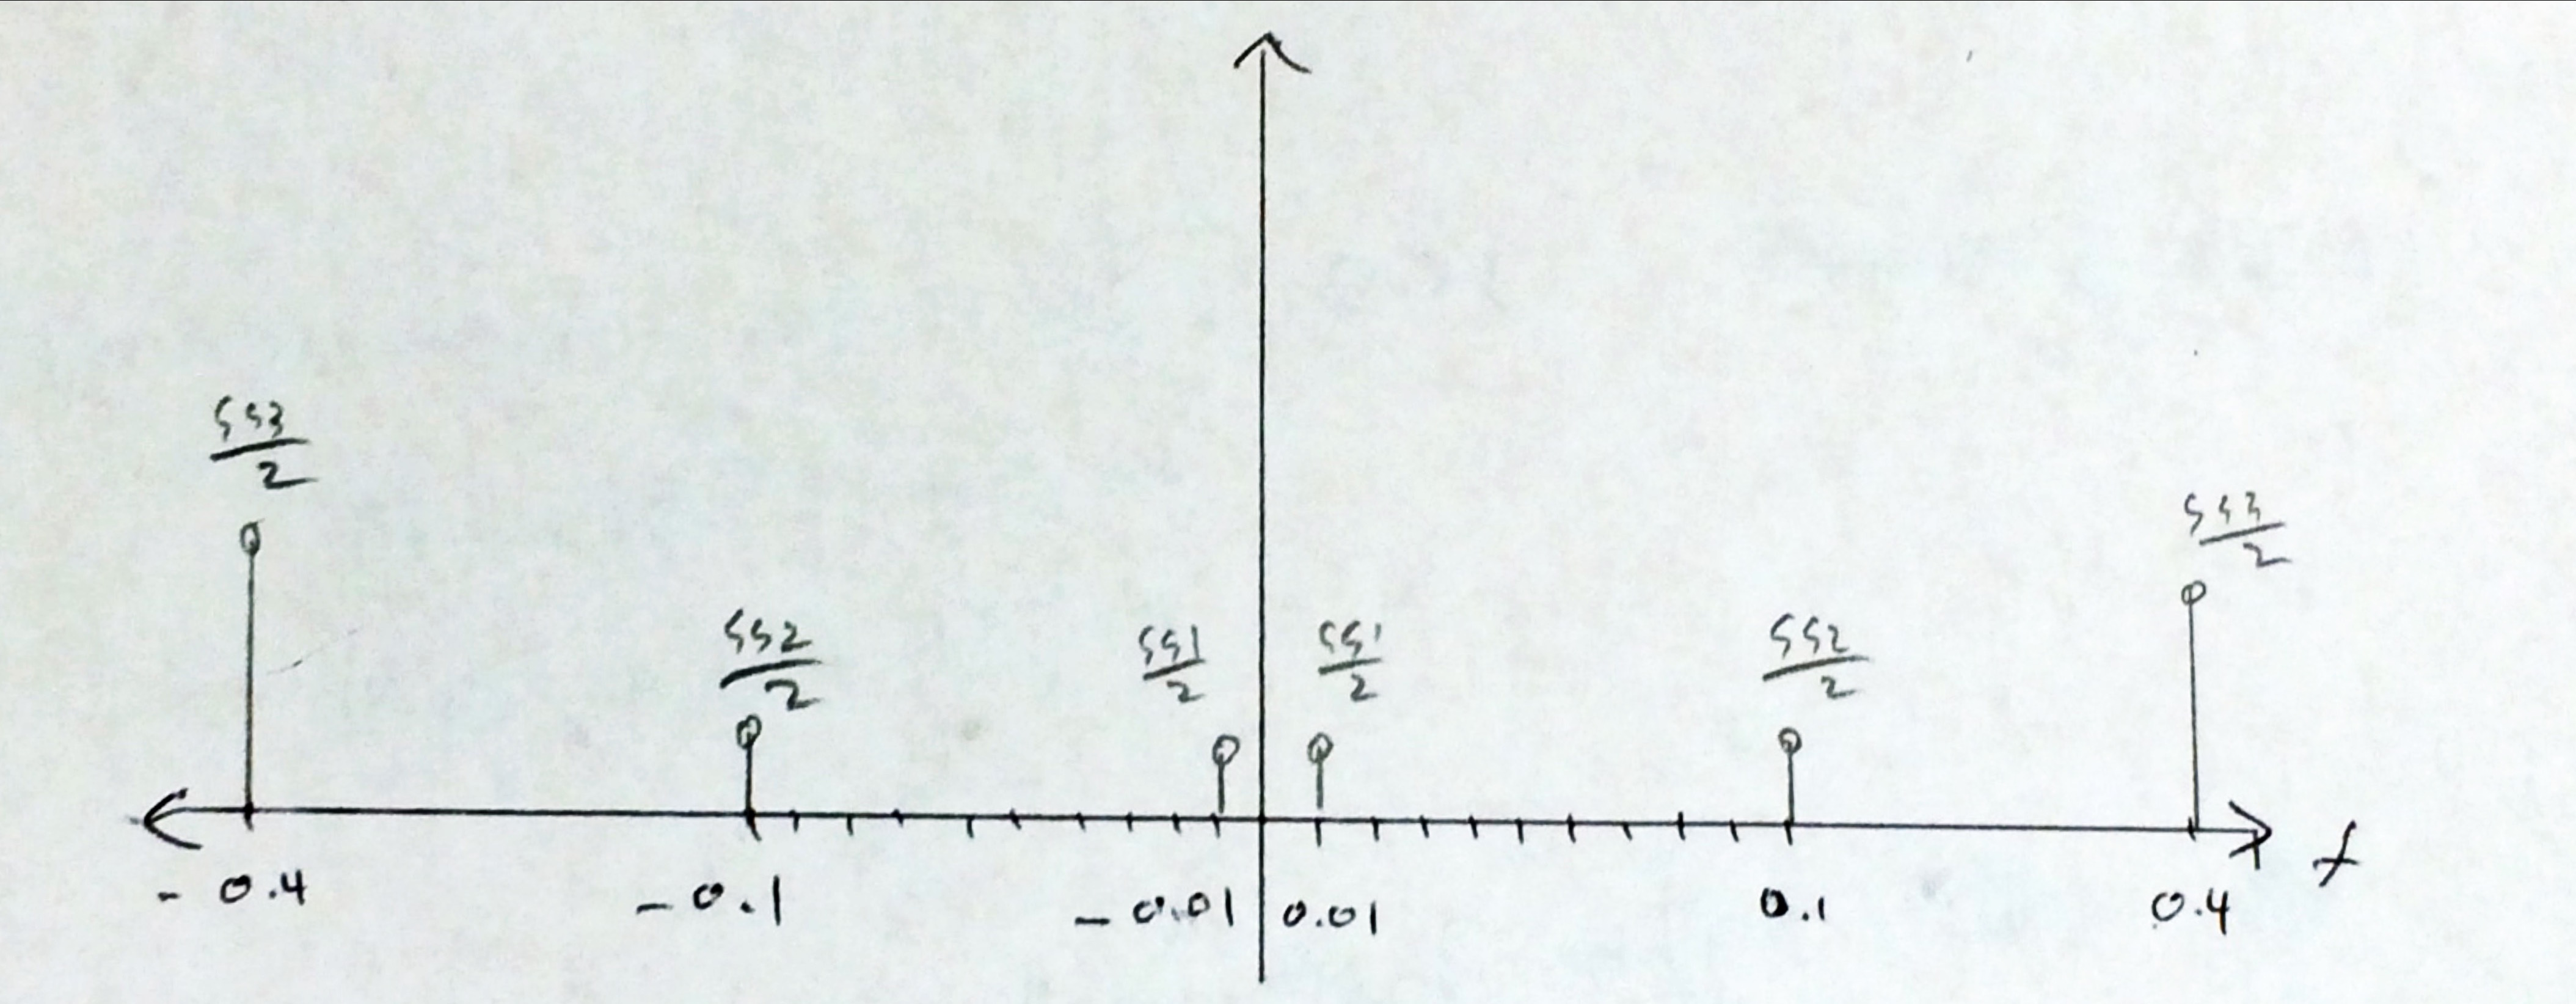 SS3
2
SS3
2
SS2
2
SS1
2
SS1
2
SS2
2
- 0.4
- 0.1
- 0.01
0.01
0.1
0.4
f